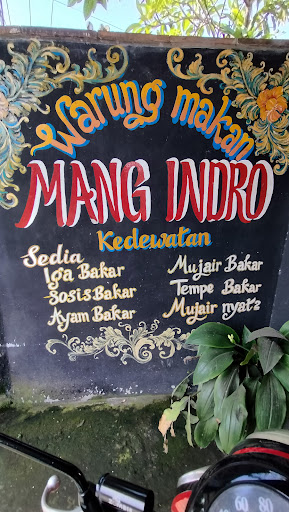 Warung makan
MANG INDRO
Kedewatan
Sedia
Iga Bakar
Sosis Bakar
Ayam Bakar
Mujair Bakar
Tempe Bakar
Mujair nyat2
60
80